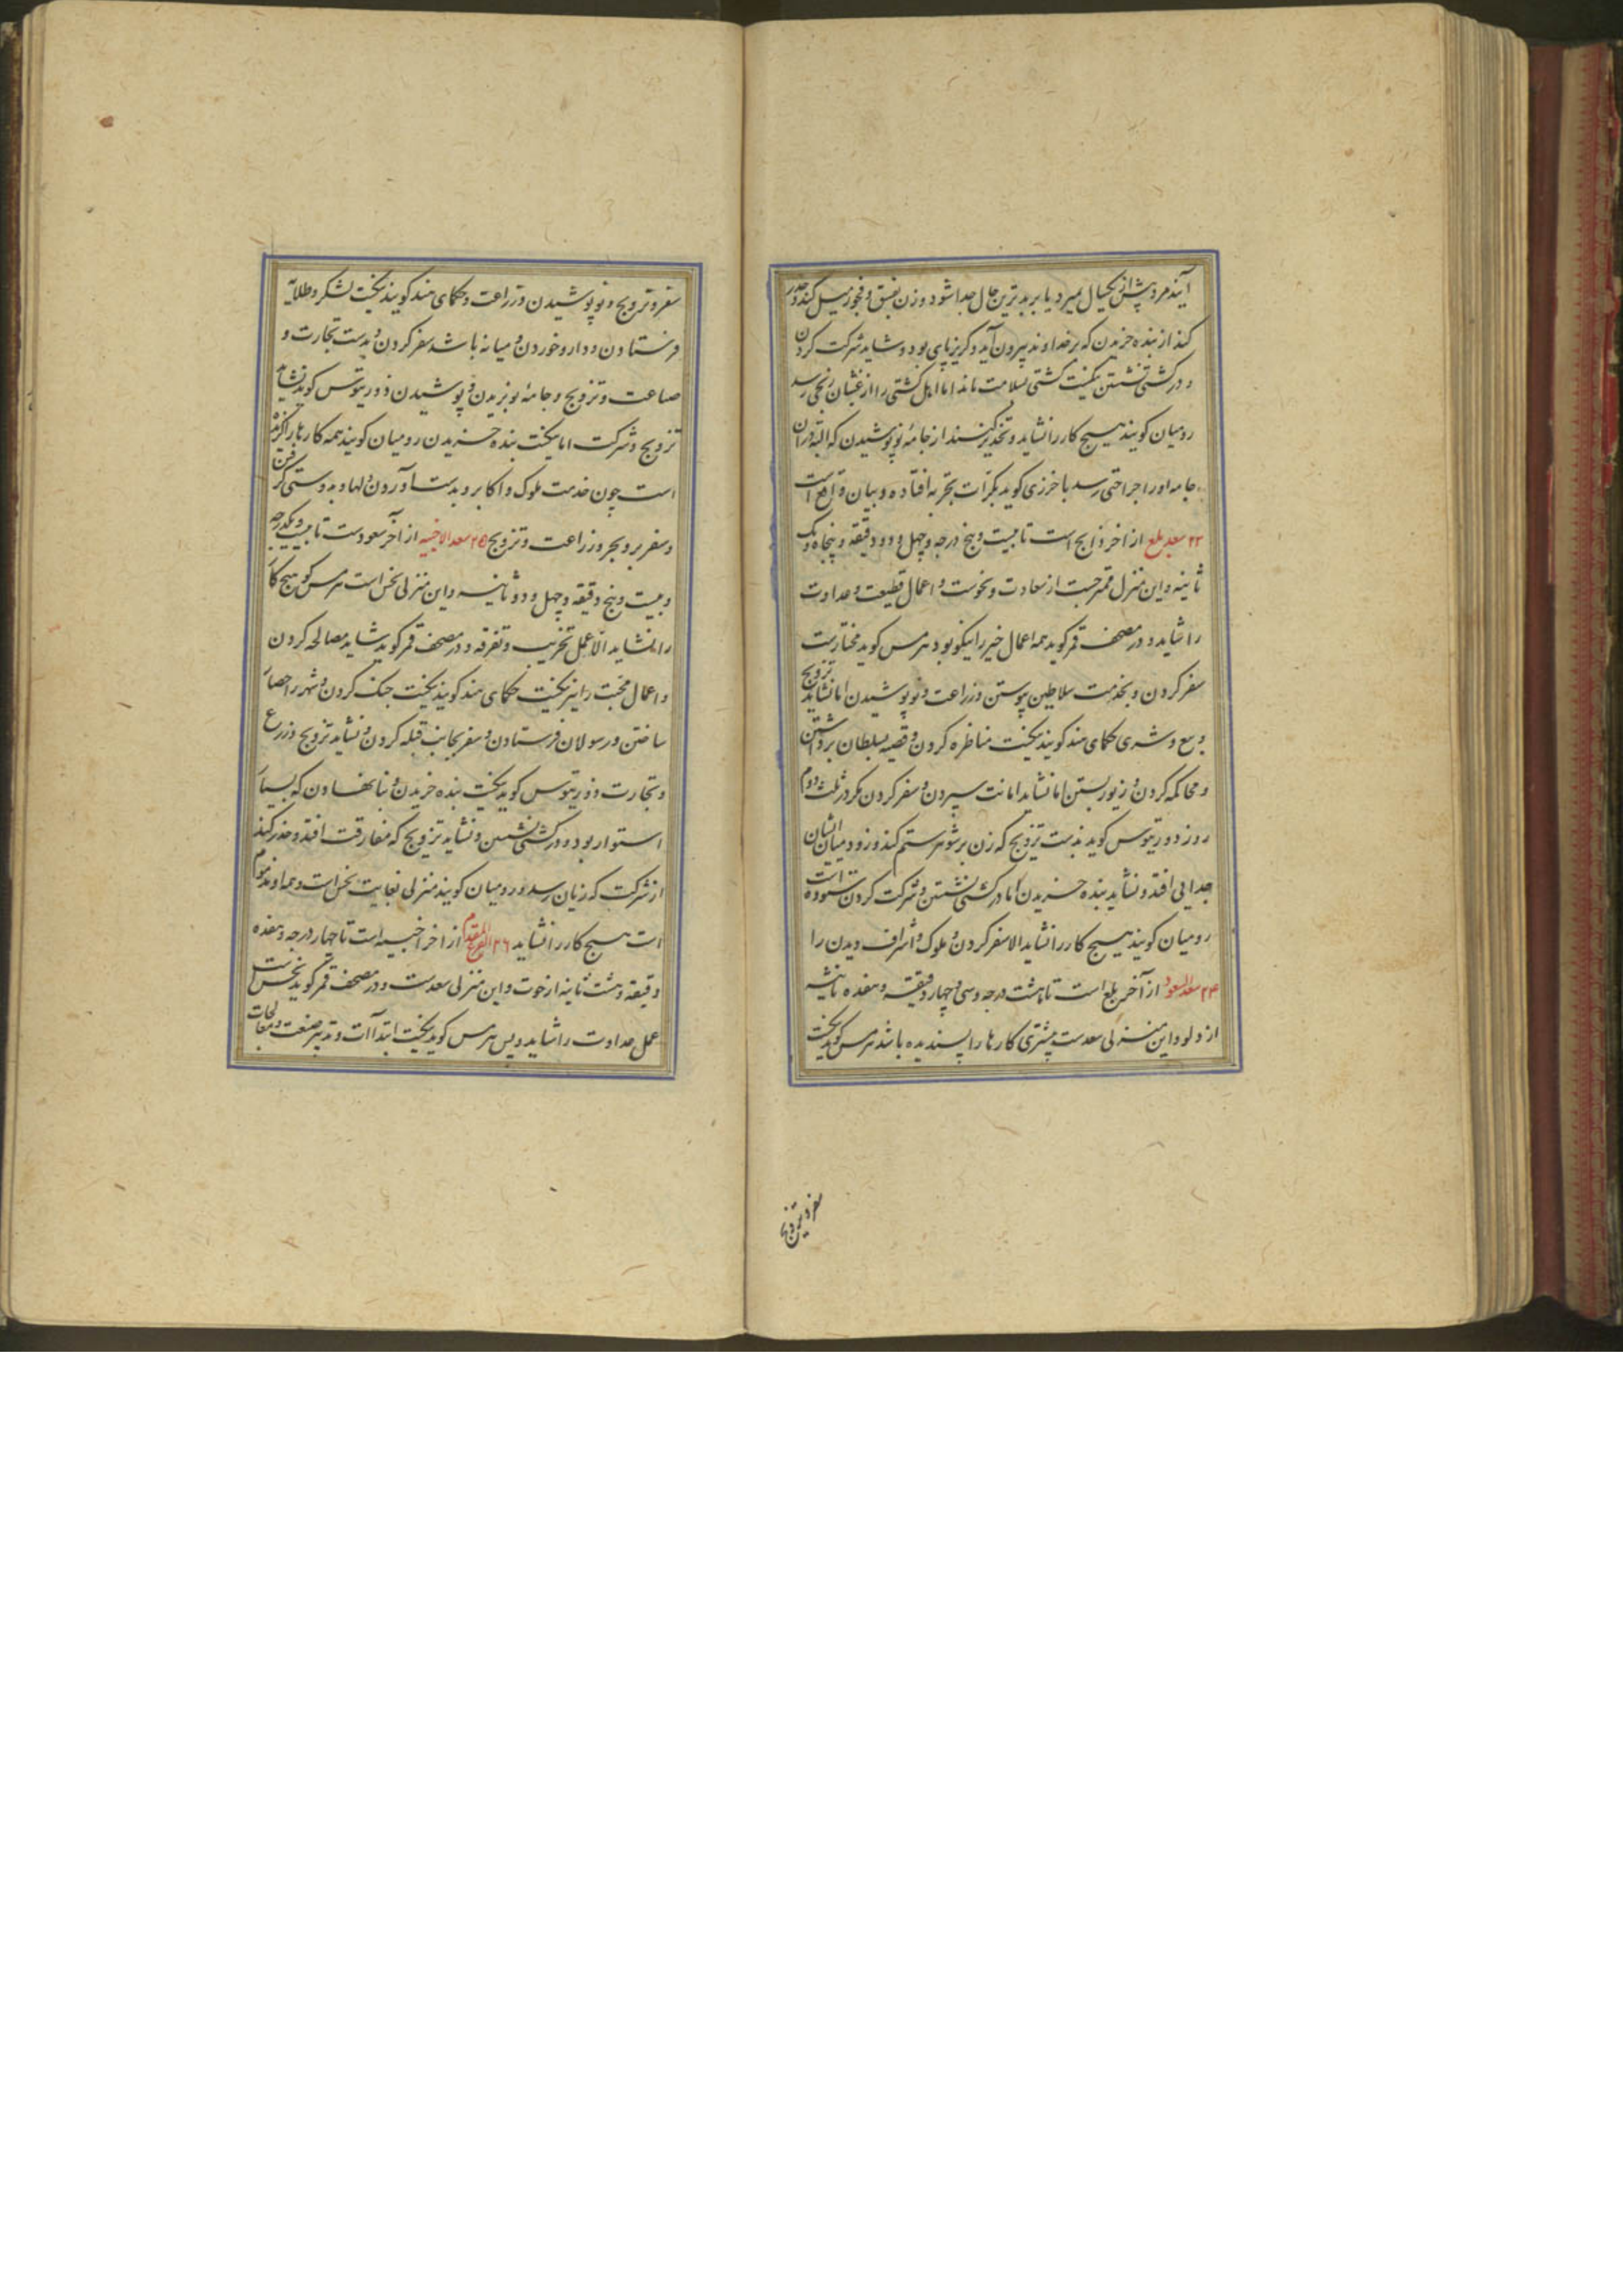 آیند مرد پیش از یکسال بمیرد یا بر بدترین حال جدا شود و زن بفسق و فجور میل کند و حذر
کند از بنده خریدن که بر خداوند بیرون آید و گریزپای بود و شاید شرکت کردن
و در کشتی نشستن نیکست کشتی بسلامت ماند اما اهل کشتی را از غثیان رنجی رسد
رومیان کویند هیچ کار را نشاید و تحذیر کنند از جامهٔ نو پوشیدن که البته در ان
جامه او را جراحتی رسد باخرزی کوید بکرات بتجربه افتاده و بیان واقع است
۲۳ سعد بلع از اخر ذابح است تا بیست و پنج درجه و چهل و دو دقیقه و پنجاه و یک
ثانیه و این منزل ممتزجست از سعادت و نحوست و اعمال قطیعت و عداوت
را شاید و در مصحف قمر کوید همه اعمال خیر را نیکو بود هرمس کوید مختارست
سفر کردن و بخدمت سلاطین پیوستن و زراعت و نو پوشیدن اما نشاید تزویج
و بیع و شری حکمای هند کویند نیکست مناظره کردن و قصه بسلطان برداشتن
و محاکمه کردن و زیور بستن اما نشاید امانت سپردن و سفر کردن مکر در ثلث دوم
روز ذوریتوس کوید بدست تزویج که زن بر شوهر ستم کند و زود میان ایشان
جدایی افتد و نشاید بنده خریدن اما در کشتی نشستن و شرکت کردن ستوده است
رومیان کویند هیچ کار را نشاید الا سفر کردن و ملوک و اشراف دیدن را
۲۴ سعد السعود از آخر بلع است تا هشت درجه و سی و چهار دقیقه و هفده ثانیه
از دلو و این منزلی سعدست بیشتری کارها را پسندیده باشد هرمس کوید نیکست
سفر و تزویج و
سفر و تزویج و نو پوشیدن و زراعت و حکمای هند کویند نیکست لشکر و طلایه
فرستادن و دارو خوردن و میانه باشد سفر کردن و بدست تجارت و
صناعت و تزویج و جامهٔ نو بریدن و پوشیدن ذوریتوس کوید نشاید
تزویج و شرکت اما نیکست بنده خریدن رومیان کویند همه کارها را کزیده
است چون خدمت ملوک و اکابر و بدست آوردن دلها و بدوستی گرفتن
و سفر بر و بحر و زراعت و تزویج ۲۵ سعد الاخبیه از آخر سعودست تا بیست و یکدرجه
و بیست و پنج دقیقه و چهل و دو ثانیه و این منزلی نحس است هرمس کوید هیچ کار
را نشاید الا عمل تخریب و تفرقه و در مصحف قمر کوید شاید مصالحه کردن
و اعمال محبت را نیز نیکست حکمای هند کویند نیکست جنک کردن و شهر را حصار
ساختن و رسولان فرستادن و سفر بجانب قبله کردن و نشاید تزویج و زرع
و تجارت ذوریتوس کوید نیکست بنده خریدن و بنا نهادن که بسیار
استوار بود و در کشتی نشستن و نشاید تزویج که مفارقت افتد و حذر کند
از شرکت که زیان رسد و رومیان کویند منزلی بغایت نحس است و عداوند مذموم
است هیچ کار را نشاید ۲۶ الفرغ المقدم از اخر اخبیه است تا چهار درجه و هفده
دقیقه و هشت ثانیه از حوت و این منزلی سعدست و در مصحف قمر کوید نحس است
عمل عداوت را شاید و بس هرمس کوید نیکست ابتداآت و تدبیر صنعت و معالجات